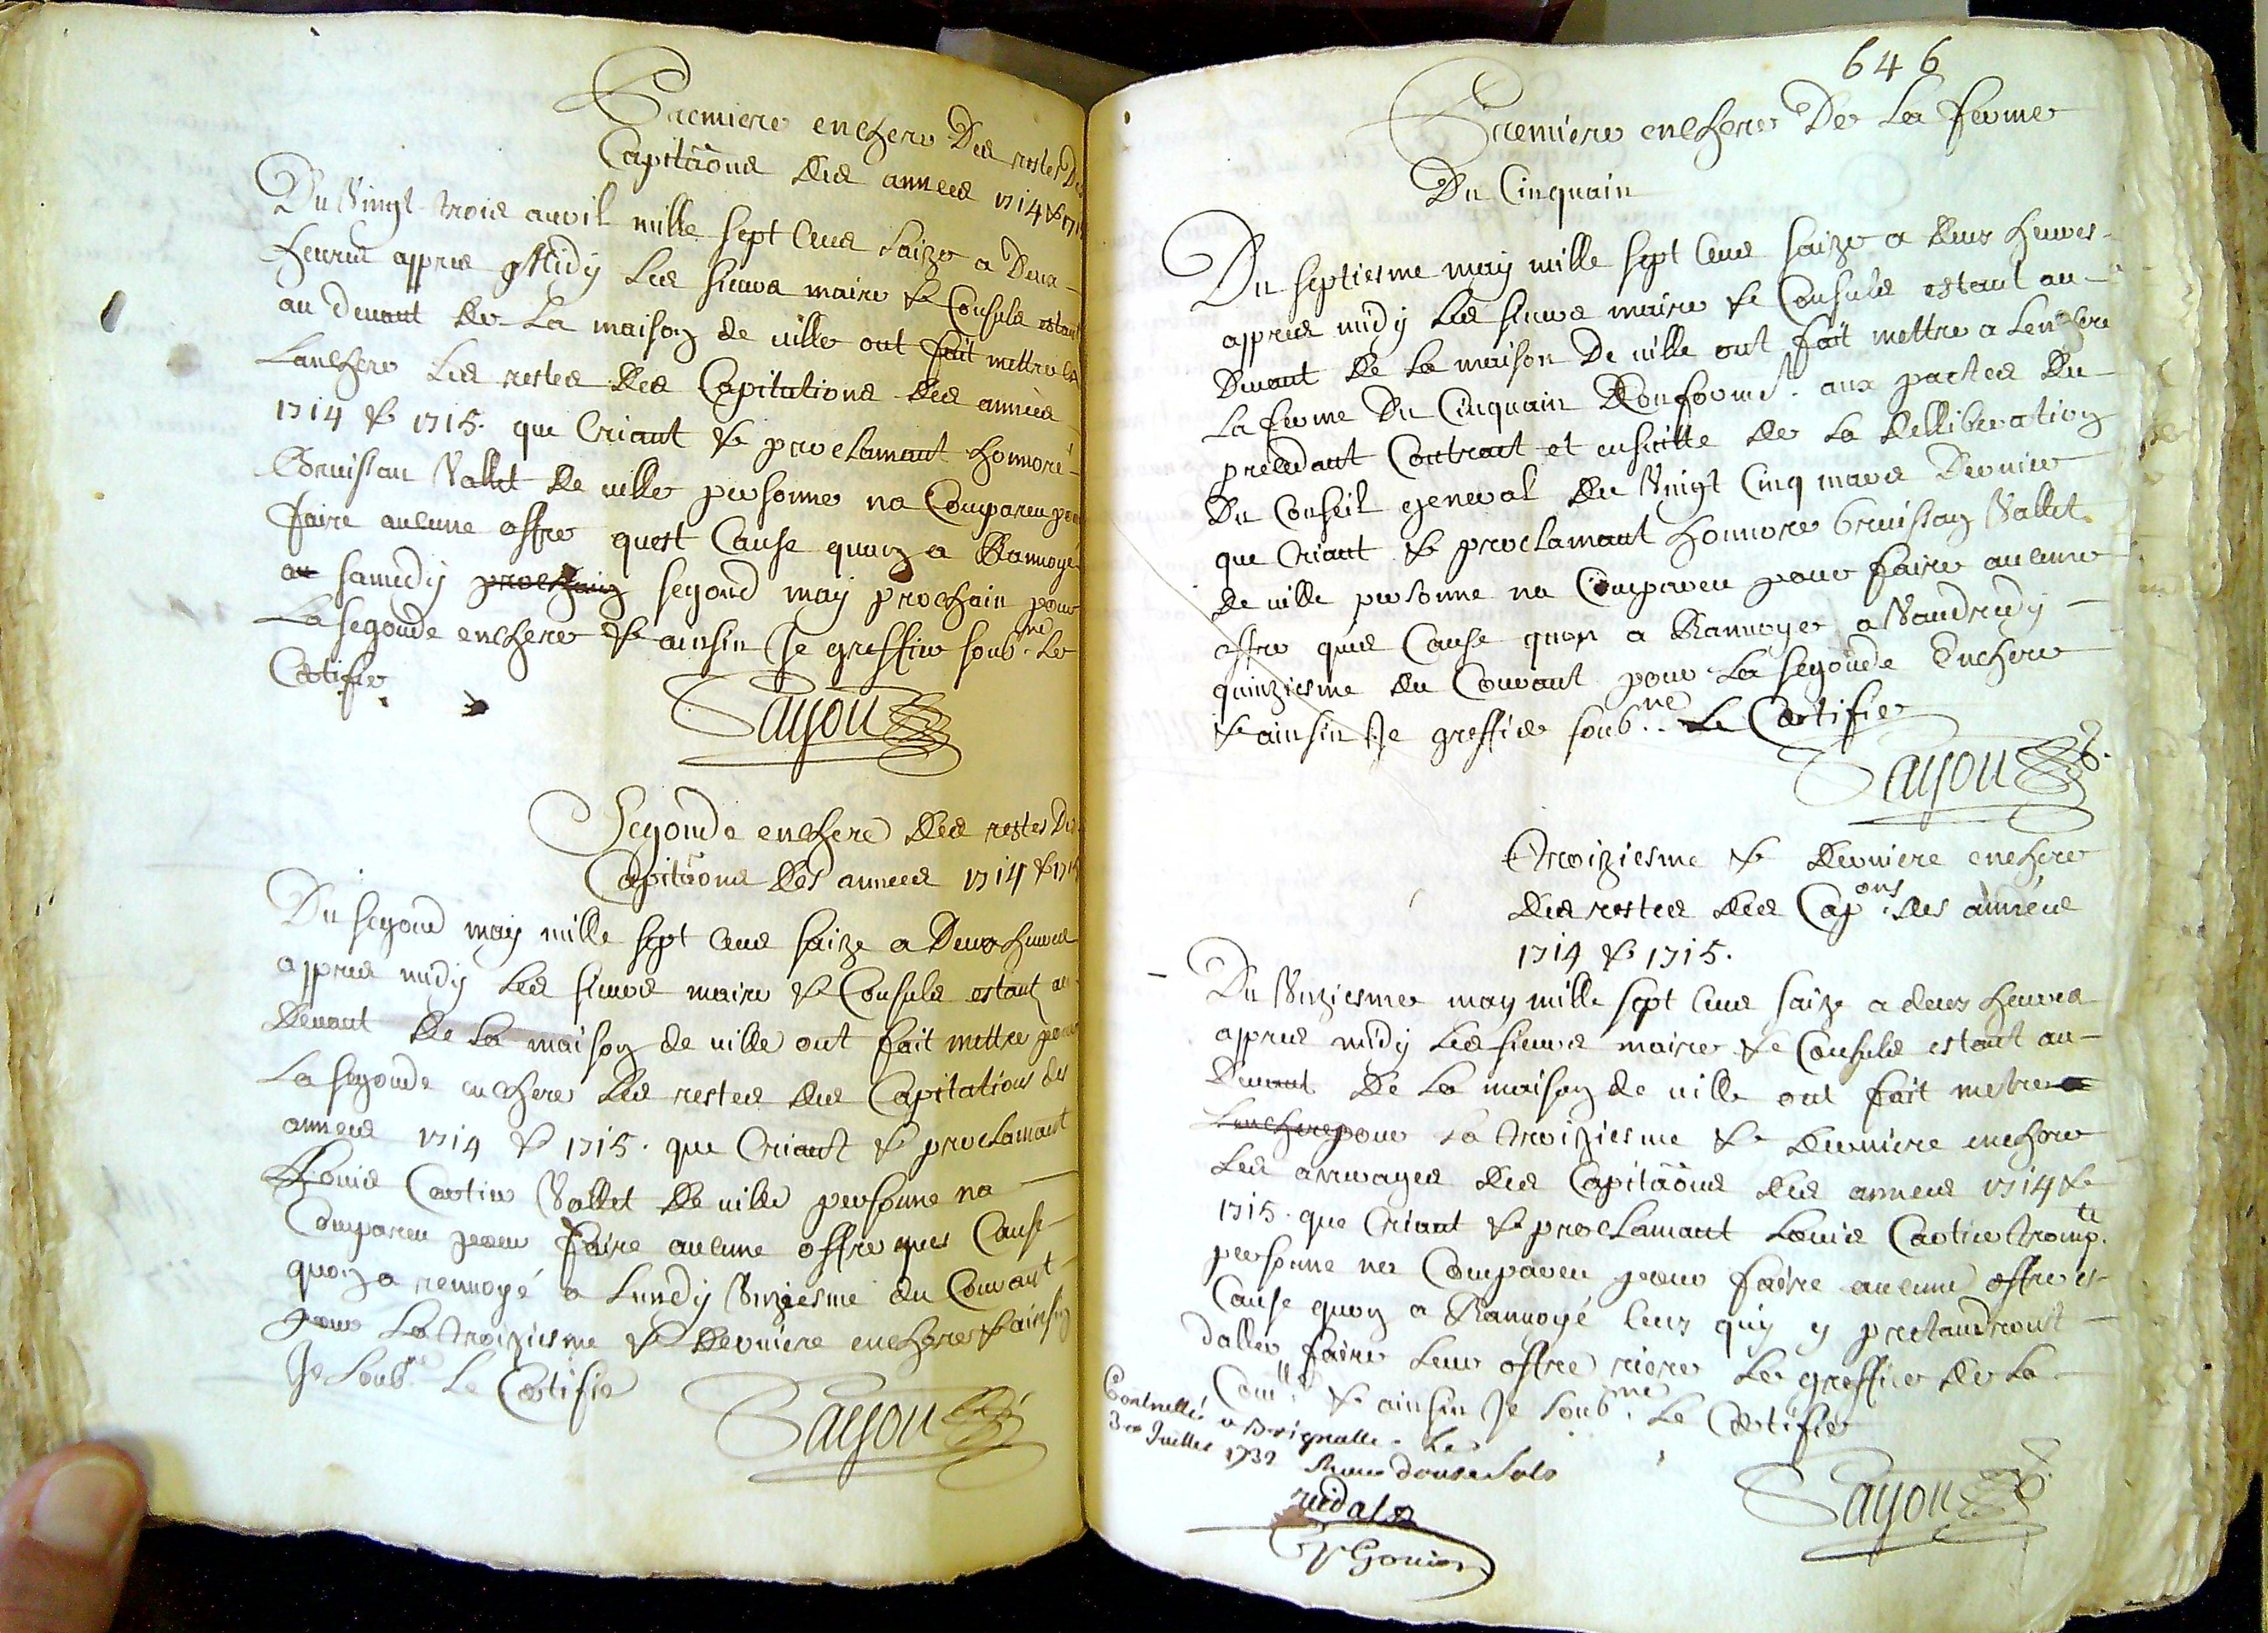 Premiere enchere Des restes Des
Capitãons des années 1714 & 1715
Du Vingt trois avvil mille sept cens saize a Deux
heures appres Midy Les sieurs maire & Consuls estant
au devant de La maison de ville ont fait mettre a
Lanchere Les restes des Capitations des années
1714 & 1715. que Criant & proclamant honnoré
Bruissan Vallet de ville personne na Compareu pour
faire aucune offre quest Cause quon a Ranvoyé
au samedy prochain segond may prochain pour
La segonde enchere & ainsin Je greffier soub.né Le
Certifie
Sayou
Segonde enchere des restes Des
Capitãons des années 1714 & 1715
Du segond may mille sept cens saize a Deux heures
appres midy Les sieurs maire & Consuls estant au
devant de La maison de ville ont fait mettre pour
La segonde enchere Les restes des Capitations des
années 1714 & 1715. que Criant & proclamant
Louis Cartier Vallet de ville personne na
Compareu pour faire aucune offre ques Cause
quon a renvoyé a Lundy Unziesme du Courant
pour La troiziesme & derniere enchere & ainsin
Je soub.né Le Certifie
Sayou
646
Premiere enchere De La ferme
Du Cinquain
Du septiesme may mille sept cens saize a deus heures
appres midy Les sieurs maire & Consuls estant au
devant de La maison De ville ont fait mettre a Lenchere
La ferme Du Cinquain Conformé. aux pactes du
precedant Contract et ensuitte de La delliberation
Du Conseil general du Vingt Cinq mars dernier
que Criant & proclamant honnore Bruissan Vallet
de ville personne na Compareu pour faire aucune
offre ques Cause quon a Ranvoyer a Vandredy
quinziesme du Courant pour La segonde Enchere
& ainsin Je greffier soub.né Le Certifie
Sayou
Troiziesme & derniere enchere
des restes des Cap.ons des années
1714 & 1715.
Du Unziesme may mille sept cens saize a deux heures
appres midy Les sieurs maire & Consuls estant au
devant de La maison de ville ont fait metre a
Lenchere pour La troiziesme & derniere enchere
Les arreyages des Capitãons des années 1714 &
1715. que Criant & proclamant Louis Cartier tromp.te
personne na Compareu pour faire aucune offre es
Cause quon a Ranvoyé ceux quy y pretandront
daller faire Leur offre riere Le greffier de La
Com.té & ainsin Je soub.né Le Certifie
Sayou
Contrellé a Brignolle Le
3me Juillet 1732 Receu douse sols
redal
Gouion